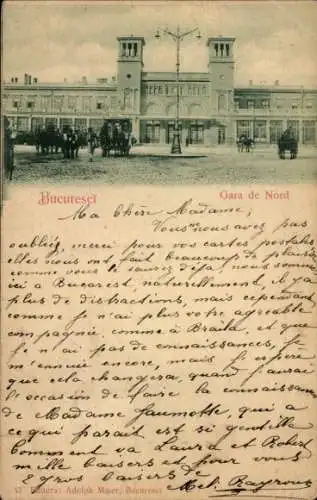 Bucuresci
Gara de Nord
Ma Chère Madame,
Vous ne nous avez pas
oubliés, merci pour vos cartes postales
elles nous ont fait beaucoup de plaisir
comme vous le saurez déja, nous sommes
ici a Bucarest, naturellement, il y a
plus de distractions, mais cependant
comme je n'ai plus votre agreable
compagnie, comme à Braila, et que
je n'ai pas de connaissances, je
m'ennuie encore, mais j'espére
que cela changera, quand j'aurai
l'occasion de faire la connaissance
de Madame, qui a
ce qui parait est si gentille
Comment va Laura et Robert
mille baisers et pour vous
2 gros baisers
Editura: Adolph Maier, Bucuresci